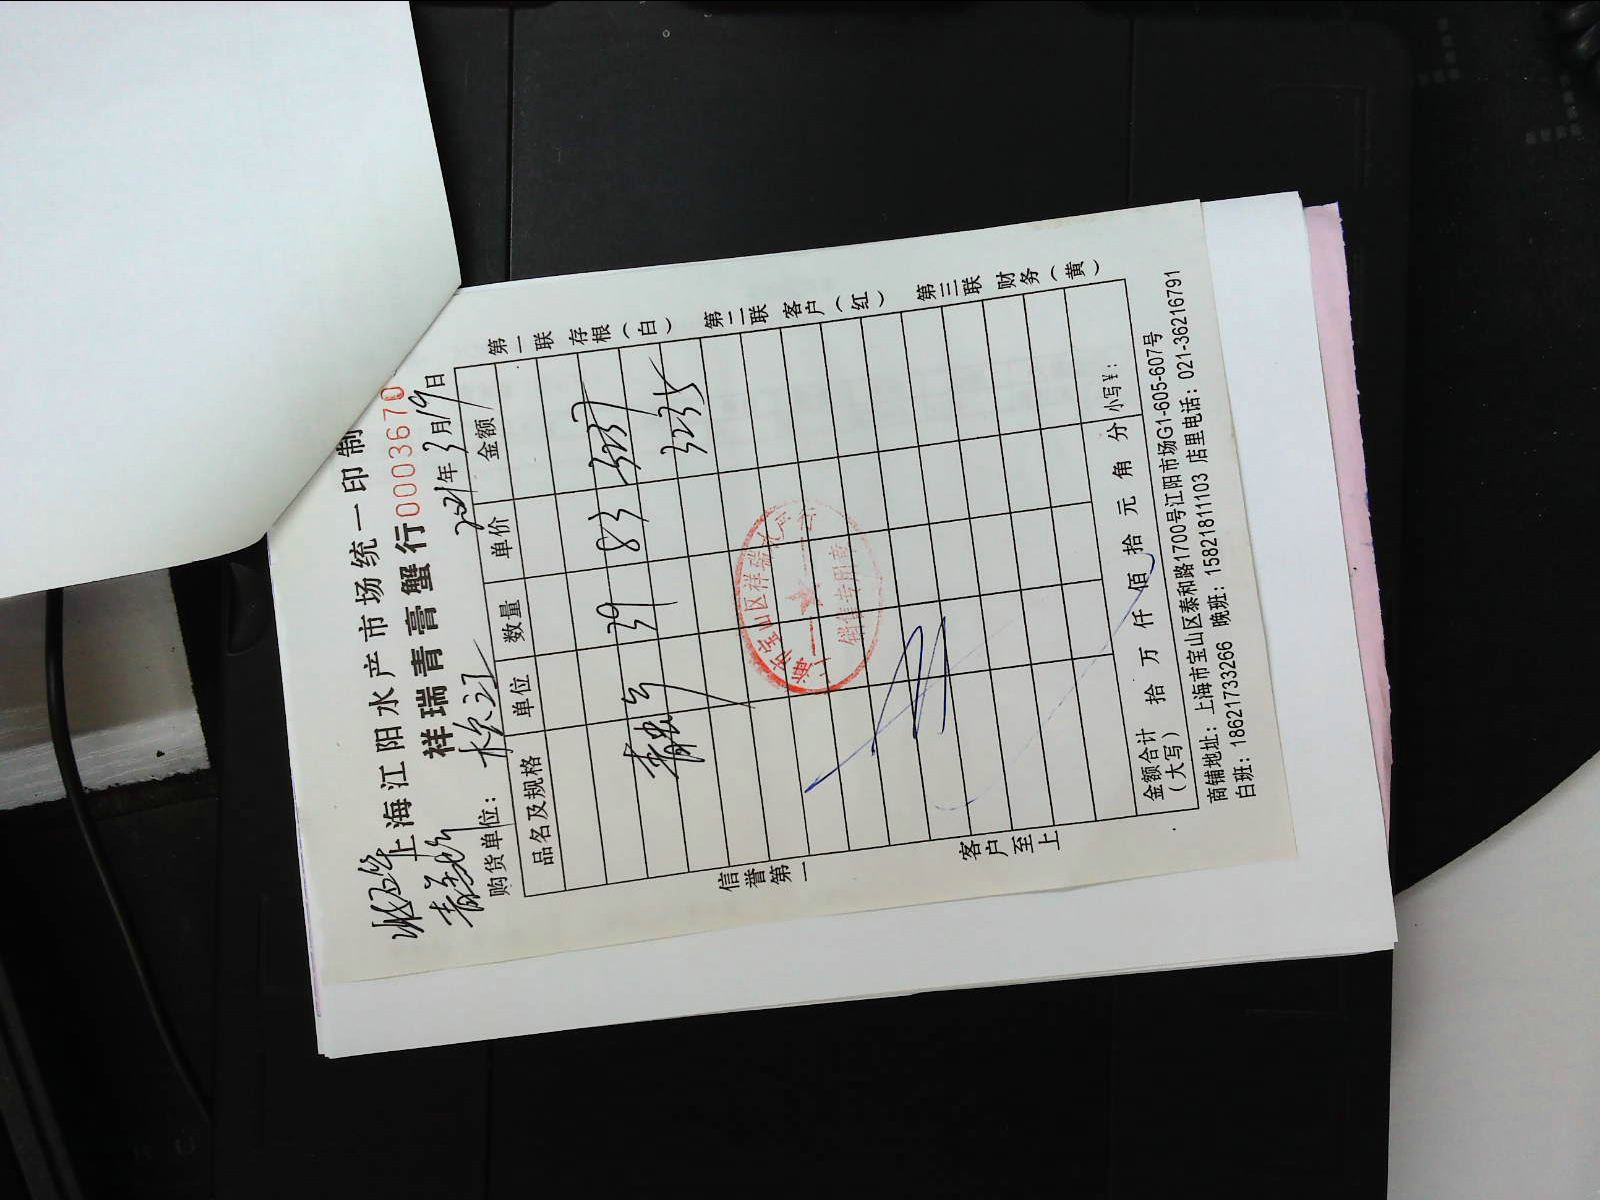 上海江阳水产市场统一印制
祥瑞青膏蟹行 0003670
购货单位： 2021年3月19日
品名及规格 单位 数量 单价 金额
39 83 3237
3235
金额合计（大写） 拾 万 仟 佰 拾 元 角 分 小写¥：
商铺地址：上海市宝山区泰和路1700号江阳市场G1-605-607号
白班：18621733266 晚班：15821811103 店里电话：021-36216791
第一联 存根（白） 第二联 客户（红） 第三联 财务（黄）
信誉第一 客户至上
销售专用章